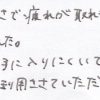 さで疲れが取れ
た。
手に入りにくいて
利用させていただ